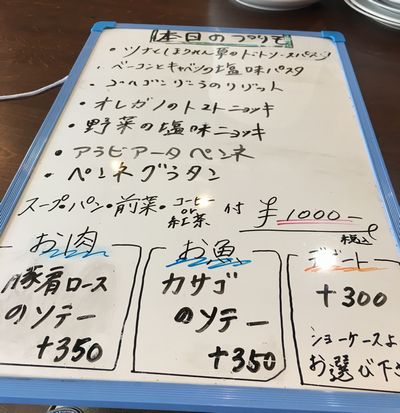 本日のつりそ
・ツナとほうれん草のトマトソースパスタ
・ベーコンとキャベツの塩味パスタ
・ゴルゴンゾーラのリゾット
・オレガノのトマトニョッキ
・野菜の塩味ニョッキ
・アラビアータペンネ
・ペンネグラタン
スープ・パン・前菜・コーヒー or 紅茶 付 ¥1000-
税込
お肉
豚肩ロース
のソテー
+350
お魚
カサゴ
のソテー
+350
デザート
+300
ショーケースよ
お選び下さ